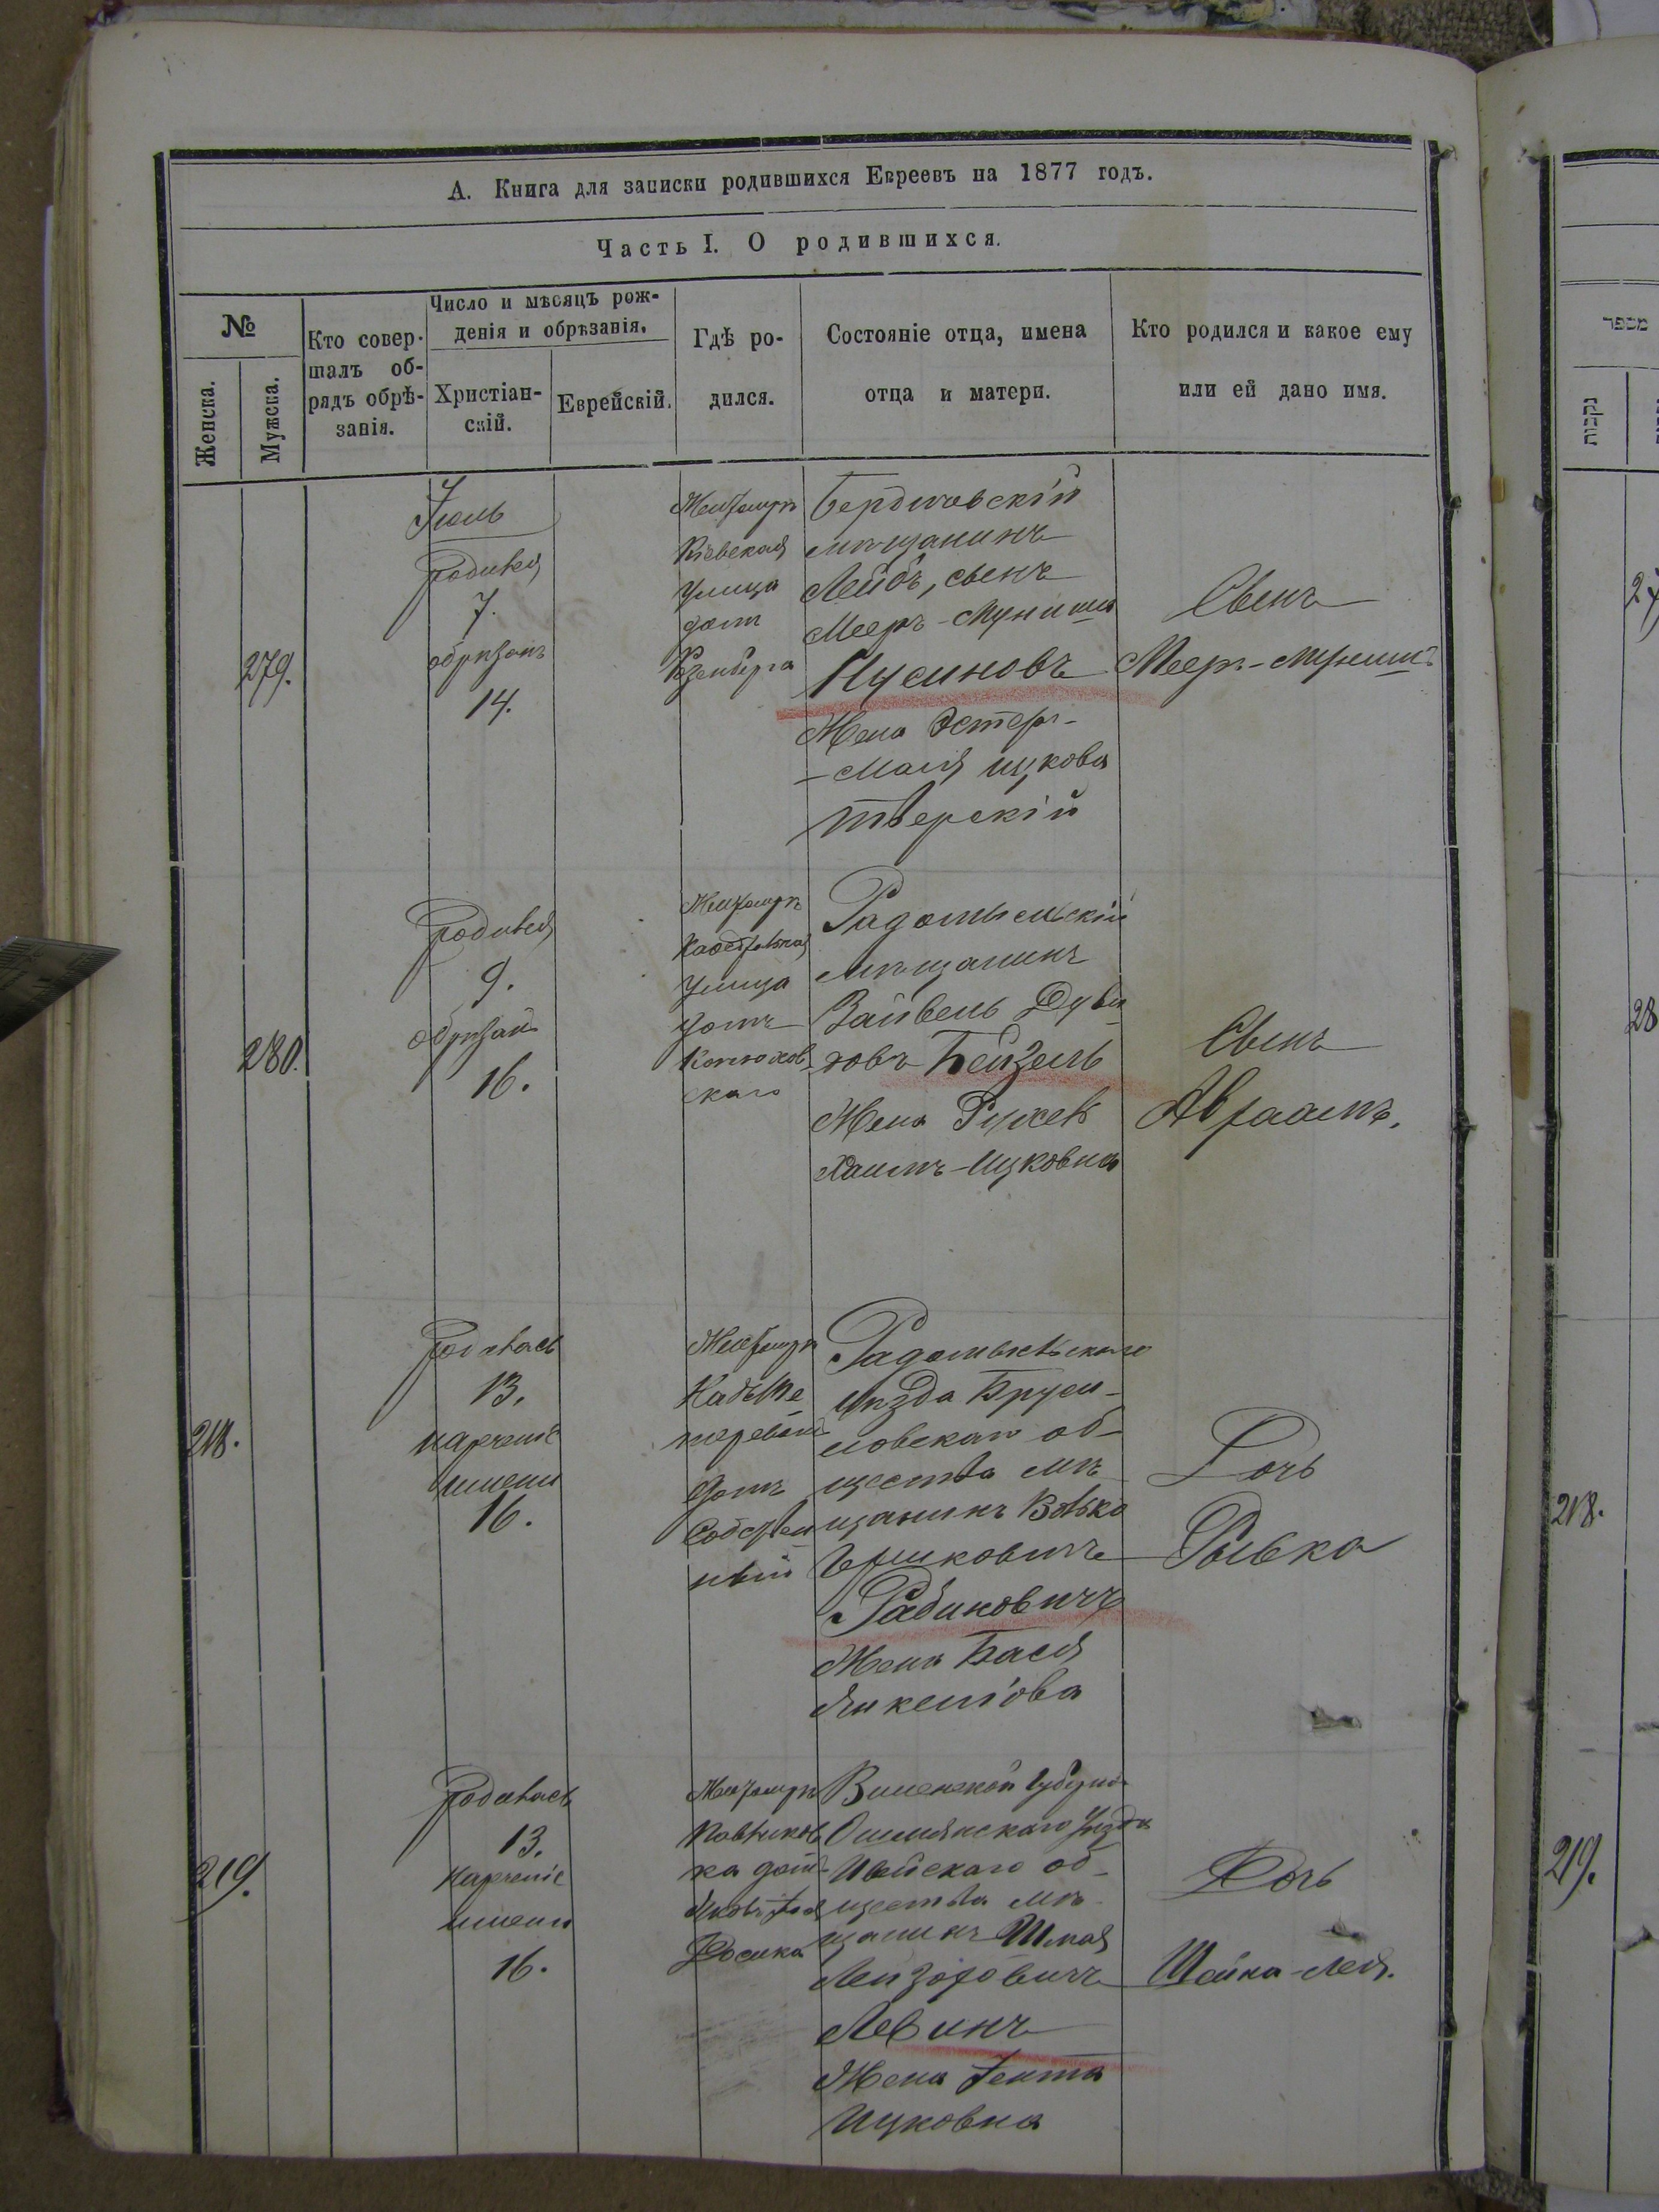 А. Книга для записки родившихся Евреевъ на 1877 годъ.
Часть I. О родившихся.
№
Женска.
Мужска.
Кто совер-
шалъ об-
рядъ обрѣ-
занія.
Число и мѣсяцъ рож-
денія и обрѣзанія.
Христіан-
скій.
Еврейскій.
Гдѣ ро-
дился.
Состояніе отца, имена
отца и матери.
Кто родился и какое ему
или ей дано имя.
279.
Іюль
родився
7.
обрѣзанъ
14.
Житомиръ
Кіевская
улица
домъ
Бердичовскій
мѣщанинъ
Лейбъ, сынъ
Мееръ-Муниша
Нусиновъ
Жена Эстеръ-
-Маля Ицкова
тверскій
Сынъ
Мееръ-Мунишъ
280.
родився
9.
обрѣзанъ
16.
Житомиръ
улица
домъ
скаго
Радомысльскій
мѣщанинъ
Зайвель Дуви
довъ Бейзель
Жена
Хаимъ-Ицковна
Сынъ
Авраамъ.
218.
родилась
13.
нареченіе
имени
16.
Житомиръ
домъ
Собствен
ный
Радомысльскаго
уѣзда Бруси-
ловскаго об-
щества мѣ
щанинъ Волько
Гершковичъ
Рабиновичъ
Жена Бася
Янкеліова
Дочь
Рывка
219.
родилась
13.
нареченіе
имени
16.
Житомиръ
ка домъ
Виленской губерніи
Ошмянскаго уѣзда
Ивейскаго об-
щества мѣ-
щанинъ Шмая
Лейзоровичъ
Левинъ
Жена Гента
Ицковна
Дочь
Шейна-Лея.
מספר
נקבות
218.
219.